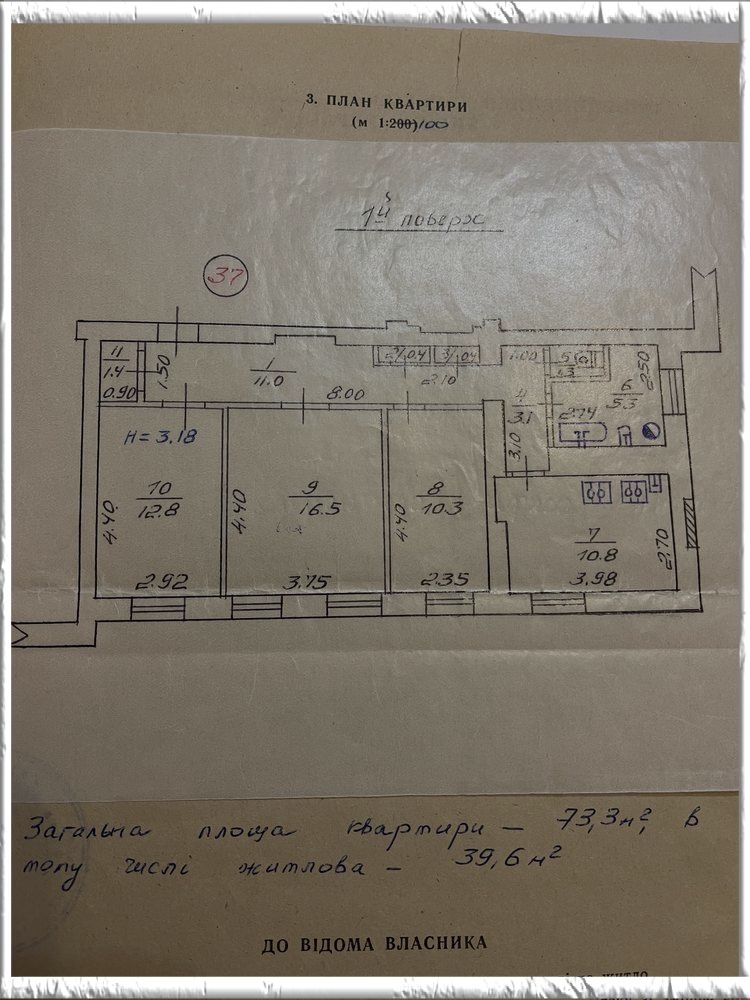 3. ПЛАН КВАРТИРИ
(м 1:200) 100
1й поверх
37
11
1.4
0.90
1.50
1
11.0
8.00
2/0.4
3/0.4
2.10
1.00
4
3.1
3.10
5
1.3
6
5.3
2.50
2.14
H = 3.18
10
12.8
4.40
2.92
9
16.5
4.40
3.75
8
10.3
4.40
2.35
7
10.8
2.70
3.98
Загальна площа квартири – 73,3 м², в
тому числі житлова – 39,6 м²
ДО ВІДОМА ВЛАСНИКА